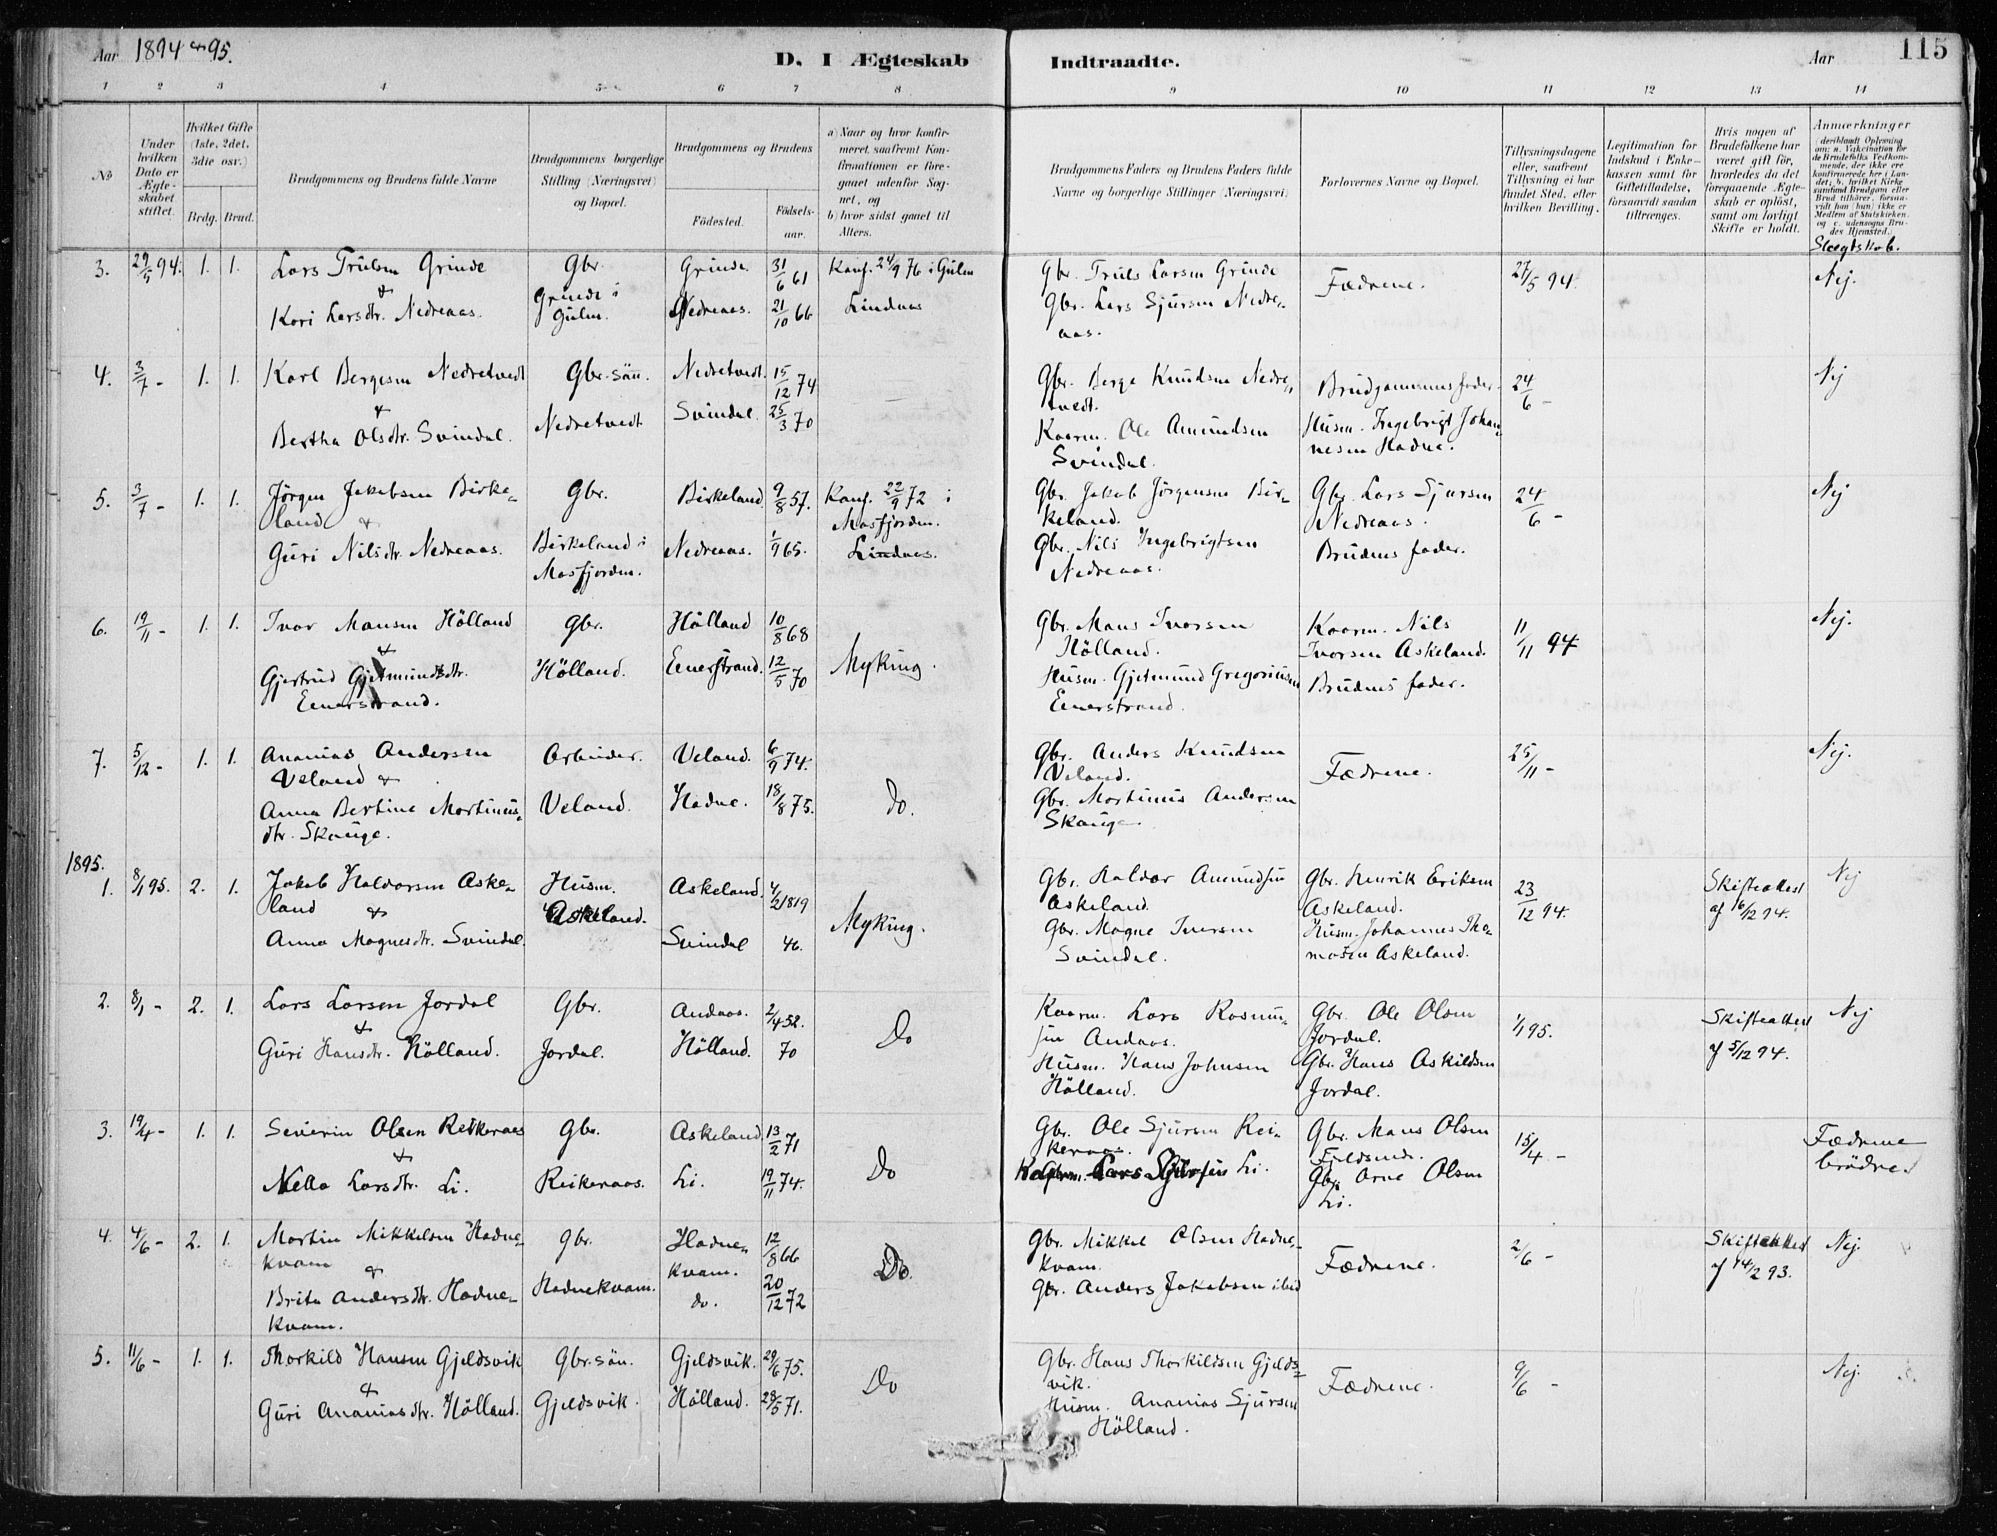 Aar 1894 & 95.
D. I Ægteskab Indtraadte.
Aar 115
1 2 3 4 5 6 7 8 9 10 11 12 13 14
No
Under hvilken Dato er Ægteskabet stiftet.
Hvilket Gifte (1ste, 2det, 3die osv.)
Brdg. Brud.
Brudgommens og Brudens fulde Navne
Brudgommens borgerlige Stilling (Næringsvei) og Bopæl.
Brudgommens og Brudens
Födested. Födselsaar.
a) Naar og hvor konfirmeret, saafremt Konfirmationen er foregaaet udenfor Sognet, og
b) hvor sidst gaaet til Alters.
Brudgommens Faders og Brudens Faders fulde Navne og borgerlige Stillinger (Næringsvei)
Forlovernes Navne og Bopæl.
Tillysningsdagene eller, saafremt Tillysning ei har fundet Sted, efter hvilken Bevilling.
Legitimation for Indskud i Enkekassen samt for Giftetilladelse, forsaavidt saadan tiltrænges.
Hvis nogen af Brudefolkene har været gift för, hvorledes da det foregaaende Ægteskab er oplöst, samt om lovligt Skifte er holdt.
Anmærkninger
Slægtskab.
3. 29/5 94. 1. 1. Lars Trulsen Grinde & Kari Larsdtr. Nedreaas. Gbr. Grinde i Gulen. Grinde. 31/6 61 Nedreaas. 21/10 66 Konf. 24/9 76 i Gulen Lindaas Gbr. Truls Larsen Grinde Gbr. Lars Sjursen Nedreaas. Fædrene. 27/5 94. Nej.
4. 3/7 - 1. 1. Karl Bergesen Nedretvedt & Bertha Olsdtr. Svindal. Gbr. sön. Nedretvedt Nedretvedt. 15/12 74 Svindal. 25/3 70 Gbr. Berge Knudsen Nedretvedt. Kaarm. Ole Amundsen Svindal. Brudgommens fader. Husm. Ingebrigt Johannesen Hadne. 24/6 - Nej
5. 3/7 - 1. 1. Jörgen Jakobsen Birkeland & Guri Nilsdtr. Nedreaas. Gbr. Birkeland i Masfjorden. Birkeland 9/8 57. Nedreaas. 1/9 65. Konf. 22/9 72 i Masfjorden. Lindaas. Gbr. Jakob Jörgensen Birkeland. Gbr. Nils Ingebrigtsen Nedreaas. Gbr. Lars Sjursen Nedreaas. Brudens fader. 24/6 - Nej
6. 19/11 - 1. 1. Ivar Mansen Hölland & Gjertrud Gjetmundsdtr. Eenerstrand. Gbr. Hölland. Hölland 10/8 68 Eenerstrand. 12/5 70 Myking. Gbr. Mans Ivarsen Hölland. Husm. Gjetmund Gregoriusen Eenerstrand. Kaarm. Nils Ivarsen Askeland. Brudens fader. 11/11 94 Nej.
7. 5/12 - 1. 1. Ananias Andersen Veland & Anna Bertine Martinusdtr. Skauge. Arbeider. Veland. Veland. 6/9 74. Hadne. 18/8 75. Do. Gbr. Anders Knudsen Veland. Gbr. Martinus Andersen Skauge. Fædrene. 25/11 - Nej.
1895.
1. 8/1 95. 2. 1. Jakob Haldorsen Askeland & Anna Magnesdtr. Svindal. Husm. Askeland. Askeland. 4/2 1819 Svindal 46. Myking. Gbr. Haldor Amundsen Askeland. Gbr. Magne Iversen Svindal. Gbr. Henrik Eriksen Askeland. Husm. Johannes Thomasen Askeland. 23/12 94. Skifteattest af 16/12 94. Nej
2. 8/1 - 2. 1. Lars Larsen Jordal & Guri Hansdtr. Hölland. Gbr. Jordal. Andaas. 2/4 52. Hölland. 70 Do Kaarm. Lars Rasmussen Andaas. Husm. Hans Johnsen Hölland. Gbr. Ole Olsen Jordal. Gbr. Hans Askildsen Jordal. 1/1 95. Skifteattest af 5/12 94. Nej
3. 19/4 - 1. 1. Severin Olsen Reikeraas & Nella Larsdtr. Li. Gbr. Reikeraas. Askeland 13/2 71 Li. 19/11 74. Do Gbr. Ole Sjursen Reikeraas. Kaarm. Lars Li. Gbr. Mans Olsen Gbr. Arne Olsen Li. 15/4 - Fædrene brödre.
4. 4/6 - 2. 1. Martin Mikkelsen Hadnekvam & Brita Andersdtr. Hadnekvam. Gbr. Hadnekvam. Hadnekvam. 12/8 66 do. 20/12 72 Do. Gbr. Mikkel Olsen Hadnekvam. Gbr. Anders Jakobsen ibid Fædrene. 2/6 - Skifteattest af 14/2 93. Nej.
5. 11/6 - 1. 1. Thorkild Hansen Gjeldsvik & Guri Ananiasdtr. Hölland. Gbr. sön. Gjeldsvik. Gjeldsvik. 29/6 75. Hölland. 28/5 71. Do Gbr. Hans Thorkildsen Gjeldsvik. Husm. Ananias Sjursen Hölland. Fædrene. 9/6 - Nej.